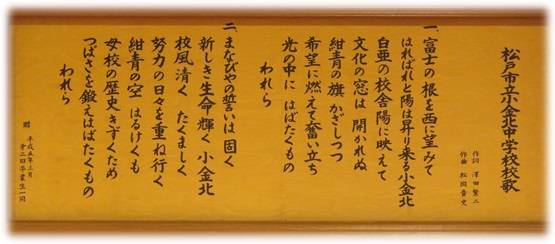 松戸市立小金北中学校校歌
作詞 澤田繁二
作曲 松岡貴史
一、富士の根を西に望みて
はればれと陽は昇り来る小金北
白亜の校舎陽に映えて
文化の窓は 開かれぬ
紺青の旗 かざしつつ
希望に燃えて奮い立ち
光の中に はばたくもの
われら
二、まなびやの誓いは 固く
新しき生命輝く 小金北
校風清く たくましく
努力の日々を重ね行く
紺青の空 はるけくも
母校の歴史きずくため
つばさを鍛えはばたくもの
われら
贈 平成五年三月
第二回卒業生一同